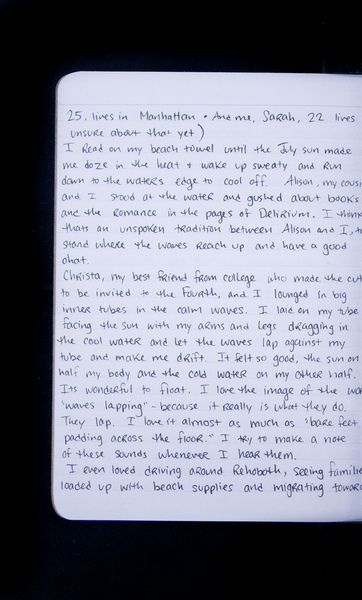 25. lives in Manhattan • And me, Sarah, 22 lives
unsure about that yet)
I Read on my beach towel until the July sun made
me doze in the heat + wake up sweaty and Run
down to the waters edge to cool off. Alison, my cousi
and I stood at the water and gushed about books
and the Romance in the pages of Delirium. I think
thats an unspoken tradition between Alison and I, to
stand where the waves reach up and have a good
chat.
Christa, my best friend from college who made the cut
to be invited to the Fourth, and I lounged in big
inner tubes in the calm waves. I laid on my tube
facing the sun with my arms and legs dragging in
the cool water and let the waves lap against my
tube and make me drift. It felt so good, the sun on
half my body and the cold water on my other half.
Its wonderful to float. I love the image of the
"waves lapping" - because it really is what they do.
They lap. I love it almost as much as "bare feet
padding across the floor." I try to make a note
of these sounds whenever I hear them.
I even loved driving around Rehoboth, seeing familie
loaded up with beach supplies and migrating toward